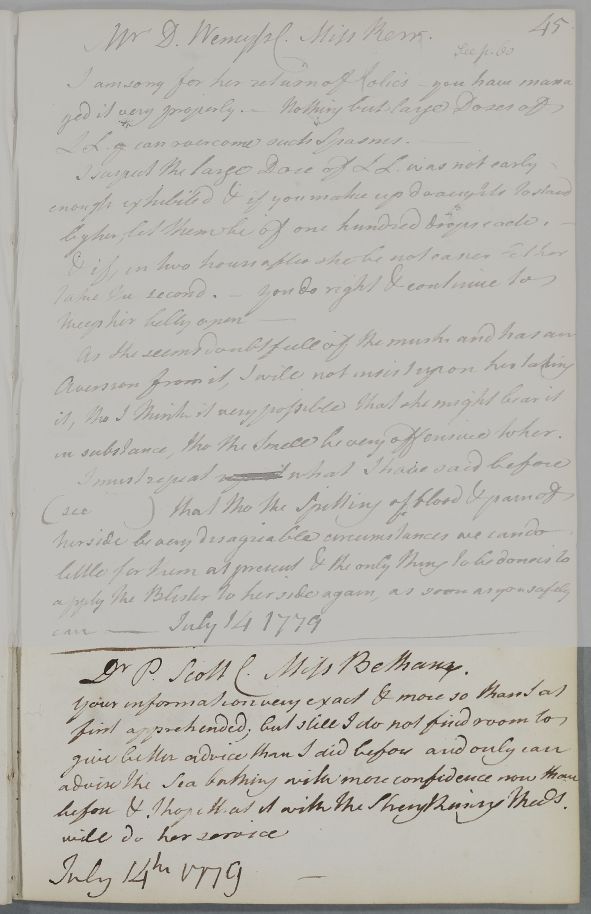 45
Mr D. Wemyss C. Miss Kerr.
See p. 60
I am sorry for her return of Kolics – you have mana
ged it very properly. — Nothing but large Doses of
L L. can overcome such Spasms. —
I suspect the large Dose of L L. was not early
enough exhibited & if you make up draughts to stand
by her, let them be of one hundred drops each. —
& if, in two hours after she be not easier let her
take the second. — You do right & continue to
keep her belly open —
As she seems doubtfull of the musk and has an
Aversion from it, I will not insist upon her taking
it, tho I think it very possible that she might bear it
in substance, tho the Smell be very offensive to her.
I must repeat what I have said before
(see ) that tho the Spitting of blood & pain of
her side be very disagreeable circumstances we can do
little for them at present & the only thing to be done is to
apply the Blister to her side again, as soon as you safely
can — July 14 1779
Dr P. Scott C. Miss Bethany.
Your information very exact & more so than I at
first apprehended; but still I do not find room to
give better advice than I did before and only can
advise the Sea bathing with more confidence now than
before & I hope that it with the Strengthening Meds.
will do her service
July 14th 1779 —